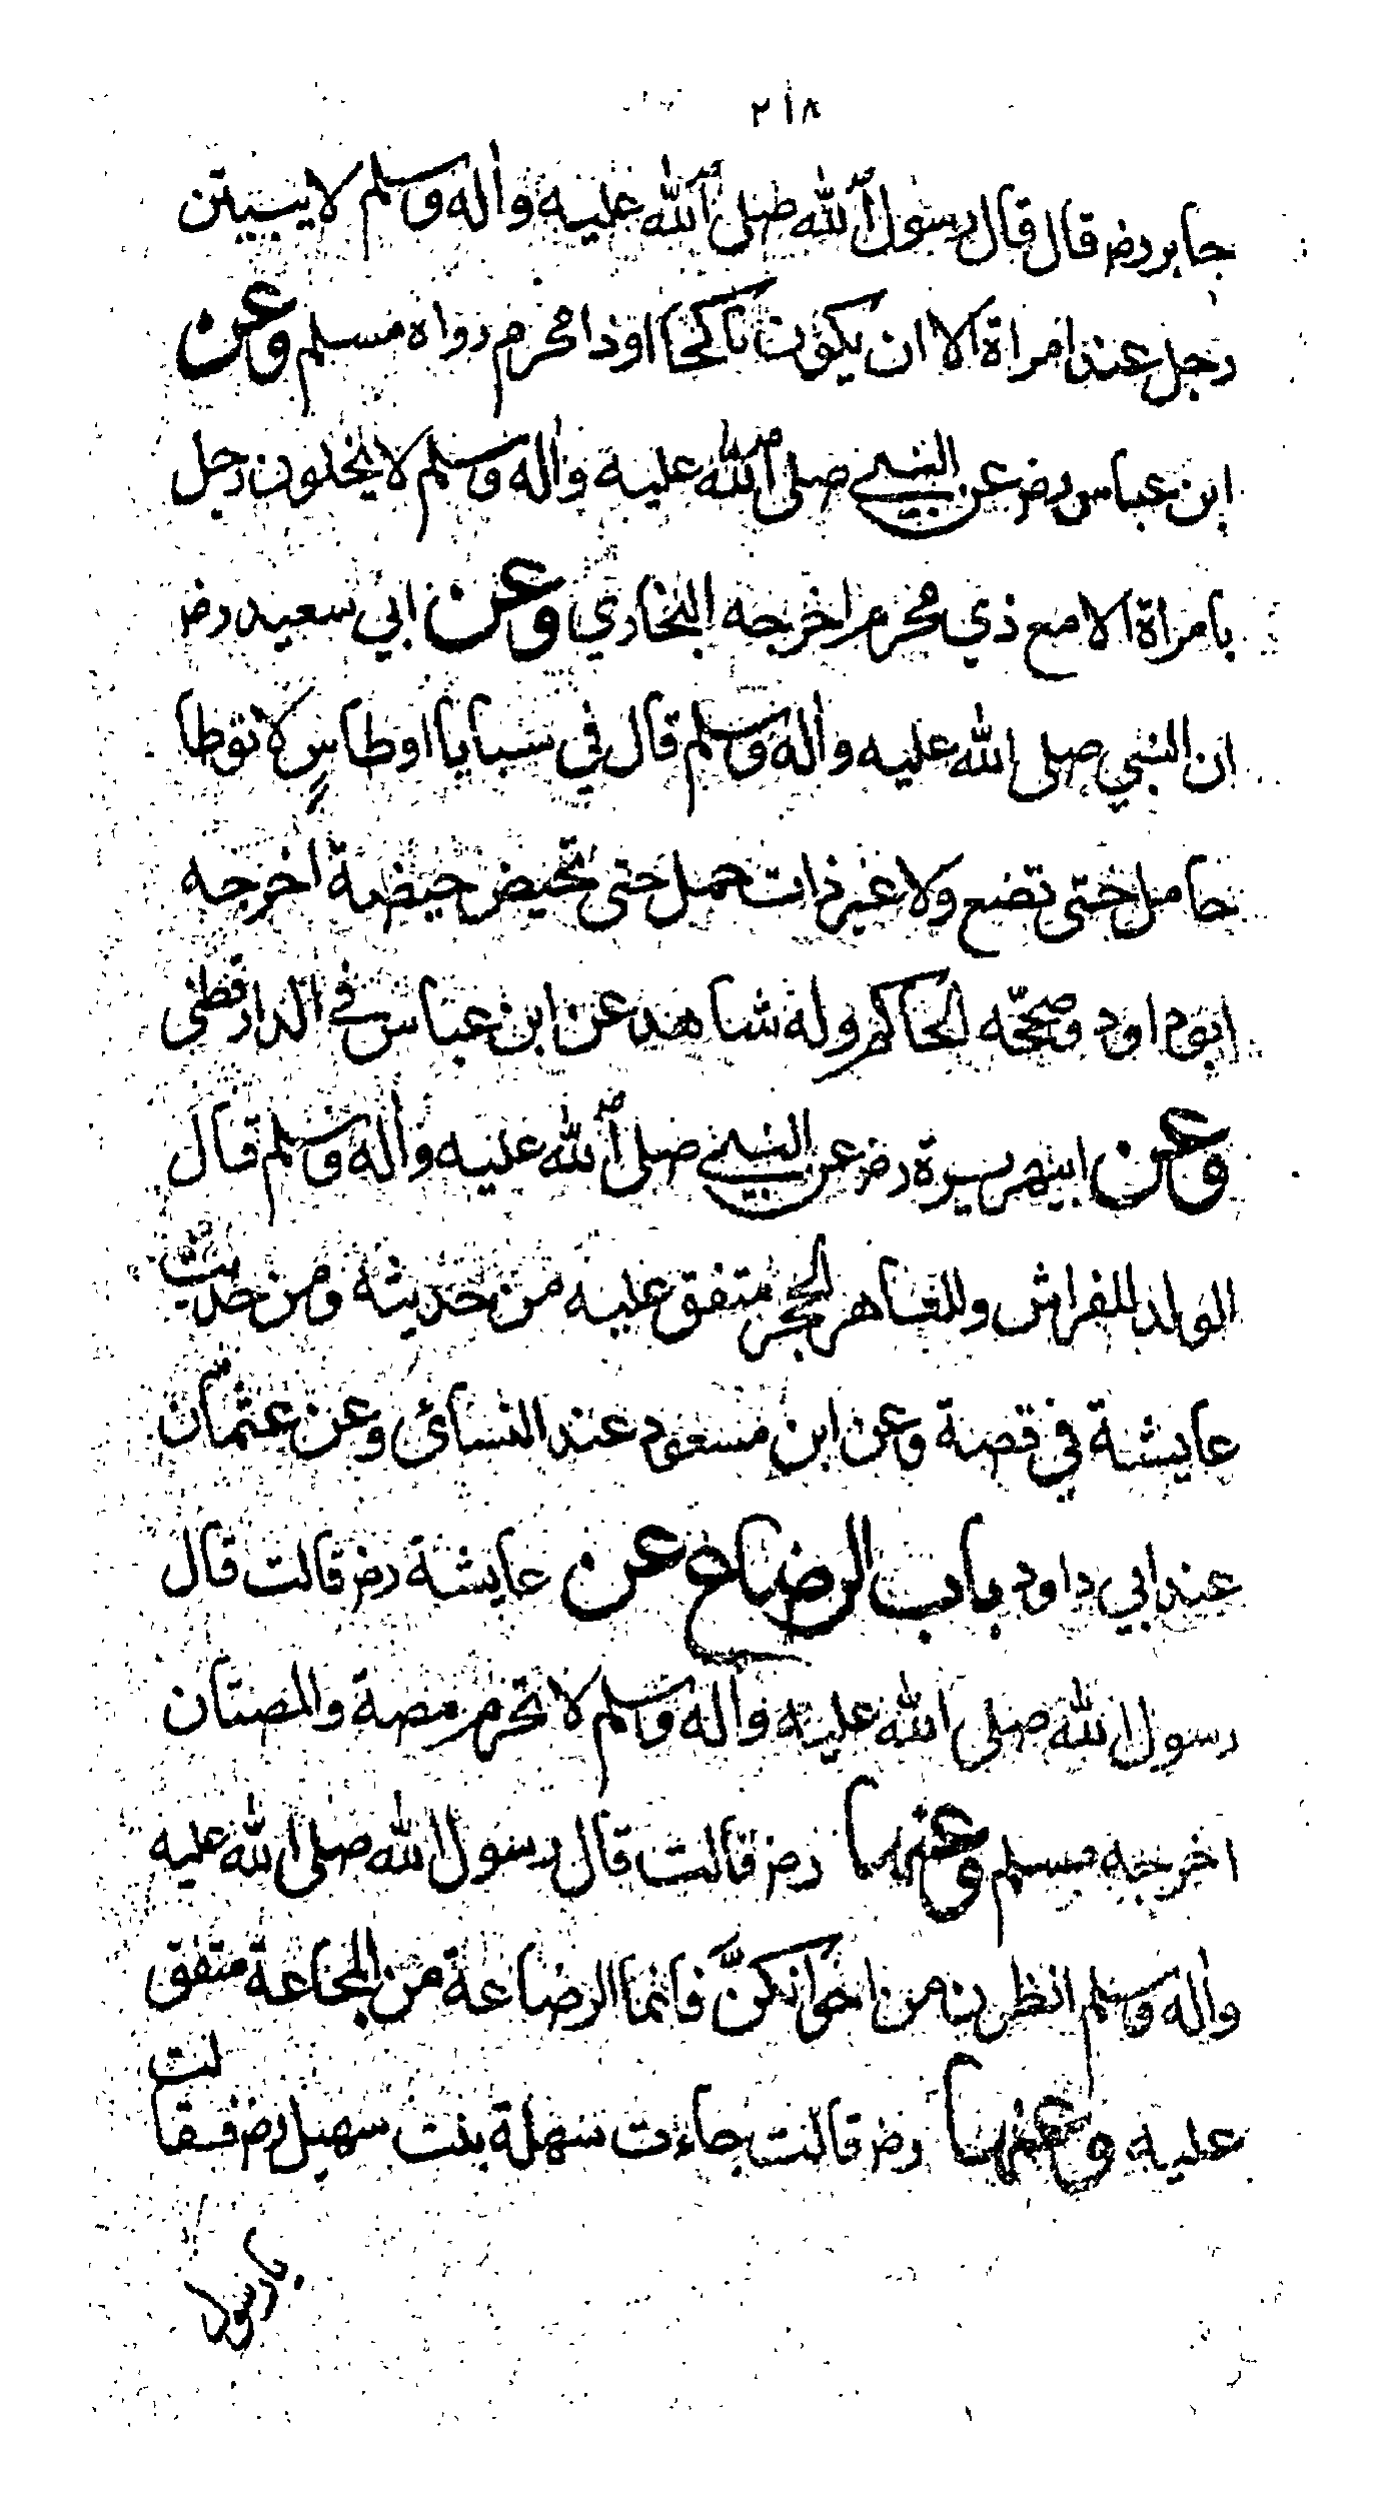 ٢١٨
جابر رض قال قال رسول الله صلى الله عليه واله وسلم لا يبيتن
رجل عند امراة الا ان يكون ناكحا او ذا محرم رواه مسلم وعن
ابن عباس رض عن النبي صلى الله عليه واله وسلم لا يخلون رجل
بامراة الا مع ذي محرم اخرجه البخاري وعن ابي سعيد رض
ان النبي صلى الله عليه واله وسلم قال في سبايا اوطاسٍ لا توطا
حامل حتى تضع ولا غير ذات حمل حتى تحيض حيضة اخرجه
ابو داود وصححّه الحاكم وله شاهد عن ابن عباس في الدارقطني
وعن ابيهريرة رض عن النبي صلى الله عليه واله وسلم قال
الولد للفراش وللعاهر الحجر متفق عليه من حديثه ومن حديث
عايشة في قصة وعن ابن مسعود عند النسائ وعن عثمان
عند ابي داود باب الرضاع عن عايشة رض قالت قال
رسول الله صلى الله عليه واله وسلم لا تحرم مصة والمصتان
اخرجه مسلم وعنها رض قالت قال رسول الله صلى الله عليه
واله وسلم انظرن من اخوانكنَّ فانما الرضاعة من المجاعة متفق
عليه وعنها رض قالت جاءت سهلة بنت سهيل رض فقالت